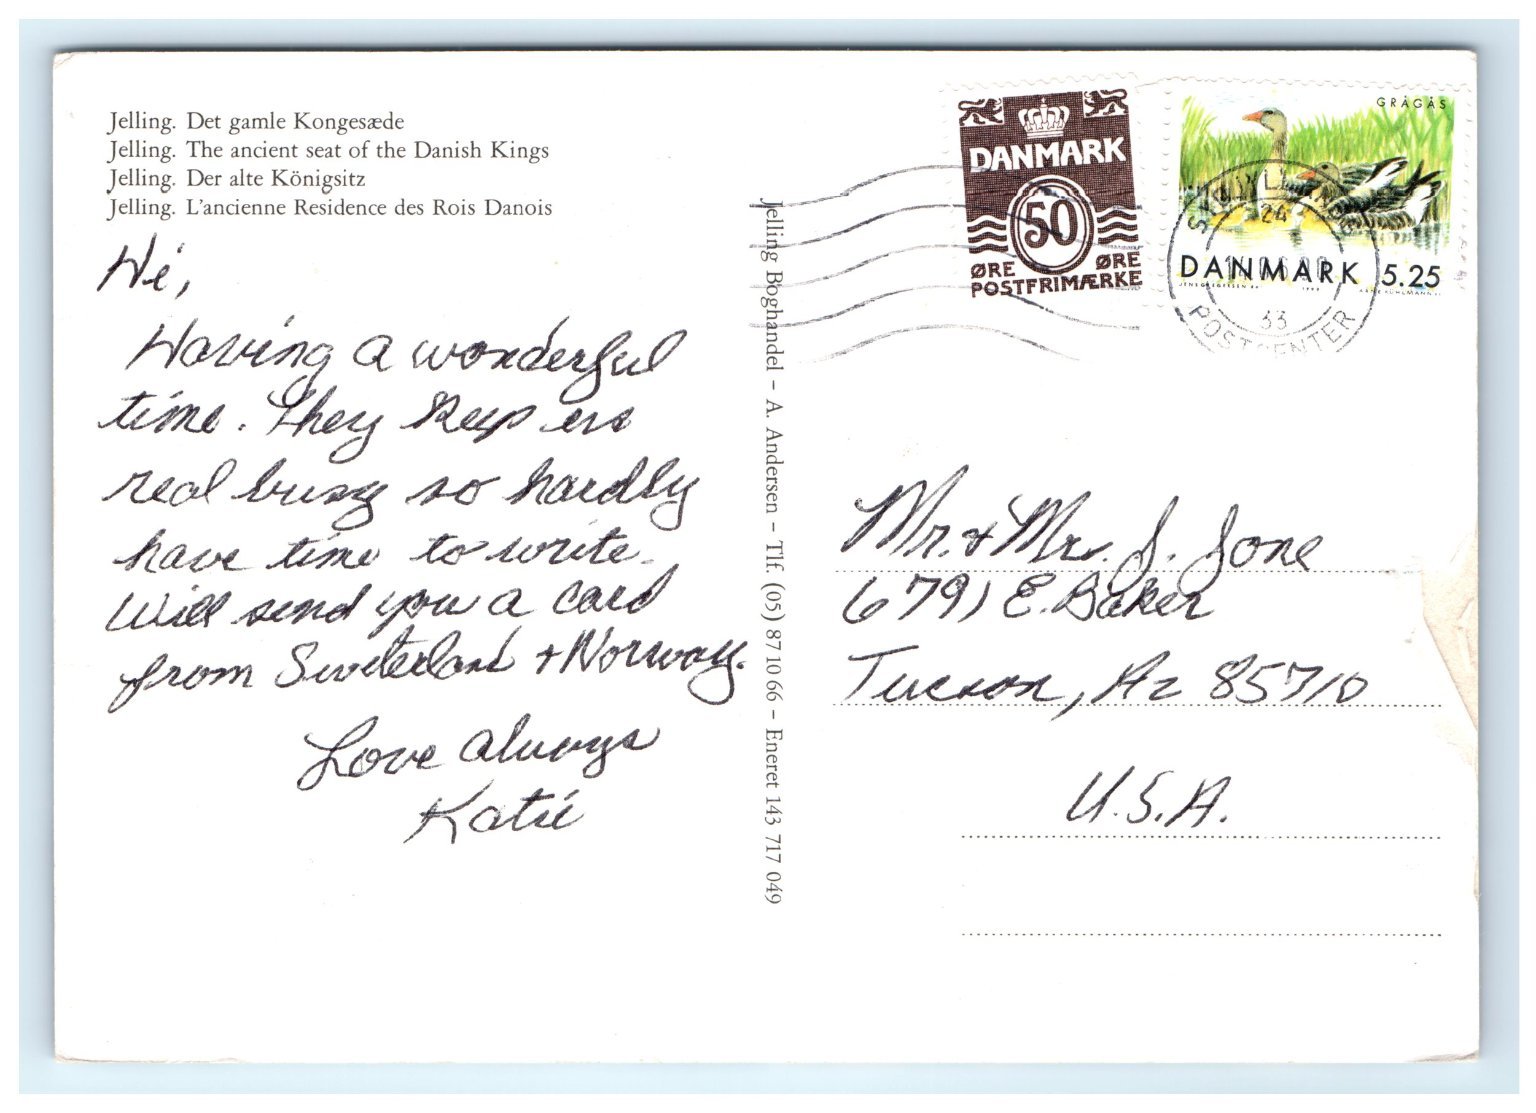 Jelling. Det gamle Kongesæde
Jelling. The ancient seat of the Danish Kings
Jelling. Der alte Königsitz
Jelling. L'ancienne Residence des Rois Danois
Hi,
Having a wonderful
time. They keep us
real busy so hardly
have time to write.
Will send you a card
from Switerland + Norway.
Love always
Katie
Jelling Boghandel – A. Andersen – Tlf. (05) 87 10 66 – Eneret 143 717 049
DANMARK
50
ØRE ØRE
POSTFRIMÆRKE
GRÅGÅS
DANMARK 5.25
24
33
POSTCENTER
Mr. + Mrs. J. Jone
6791 E. Baker
Tucson, Az 85710
U.S.A.